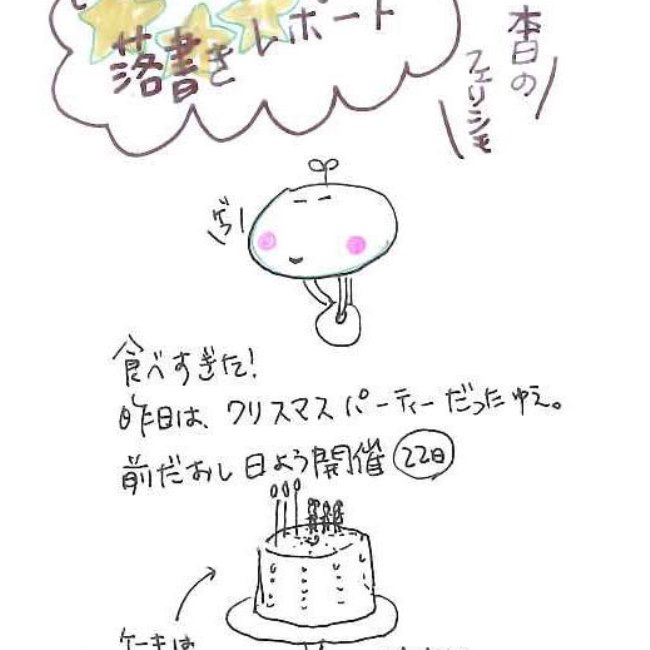 本日の
フェリシモ
落書きレポート
ゲフー
食べすぎた!
昨日は、クリスマスパーティーだったゆえ。
前だおし日よう開催 22日
ケーキは